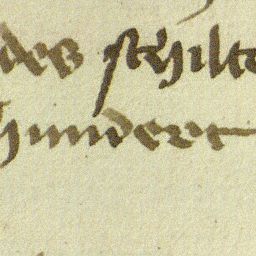 des schilt
hundert